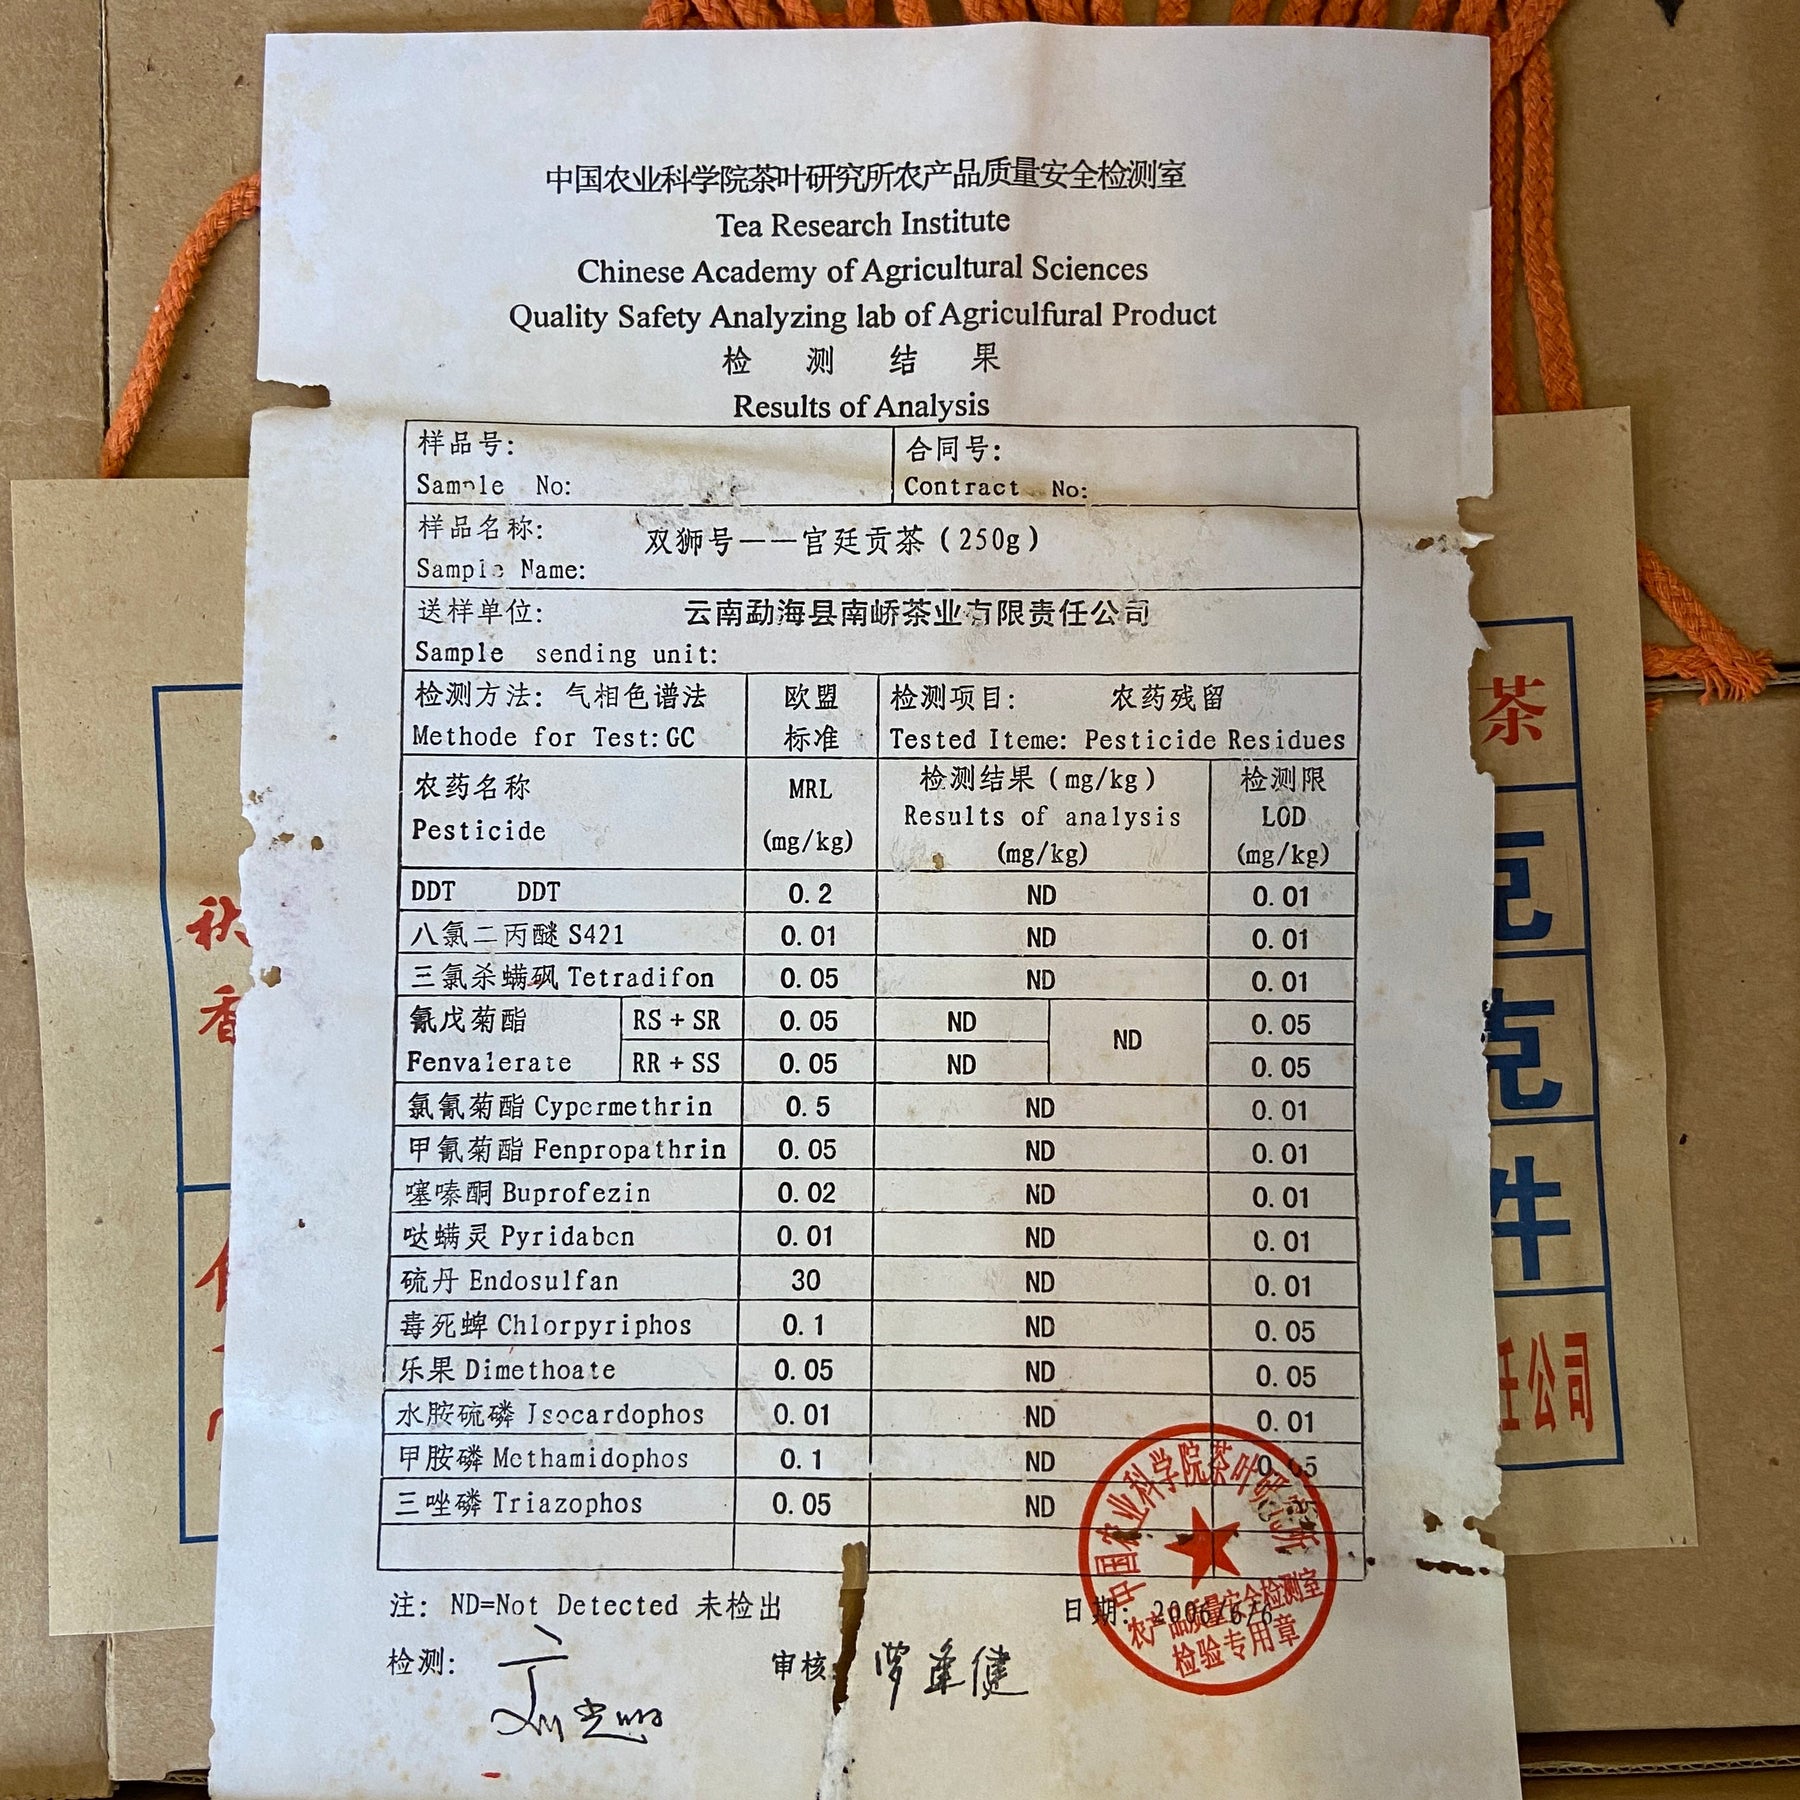 中国农业科学院茶叶研究所农产品质量安全检测室
Tea Research Institute
Chinese Academy of Agricultural Sciences
Quality Safety Analyzing lab of Agriculfural Product
检 测 结 果
Results of Analysis
样品号: 合同号:
Sample No: Contract No:
样品名称: 双狮号——宫廷贡茶(250g)
Sample Name:
送样单位: 云南勐海县南峤茶业有限责任公司
Sample sending unit:
检测方法: 气相色谱法 欧盟 检测项目: 农药残留
Methode for Test:GC 标准 Tested Iteme: Pesticide Residues
农药名称 MRL 检测结果(mg/kg) 检测限
Pesticide (mg/kg) Results of analysis LOD
(mg/kg) (mg/kg)
DDT DDT 0.2 ND 0.01
八氯二丙醚 S421 0.01 ND 0.01
三氯杀螨砜 Tetradifon 0.05 ND 0.01
氰戊菊酯 RS+SR 0.05 ND ND 0.05
Fenvalerate RR+SS 0.05 ND 0.05
氯氰菊酯 Cypermethrin 0.5 ND 0.01
甲氰菊酯 Fenpropathrin 0.05 ND 0.01
噻嗪酮 Buprofezin 0.02 ND 0.01
哒螨灵 Pyridaben 0.01 ND 0.01
硫丹 Endosulfan 30 ND 0.01
毒死蜱 Chlorpyriphos 0.1 ND 0.05
乐果 Dimethoate 0.05 ND 0.05
水胺硫磷 Isocardophos 0.01 ND 0.01
甲胺磷 Methamidophos 0.1 ND 0.05
三唑磷 Triazophos 0.05 ND
注: ND=Not Detected 未检出 日期: 2006/6/6
检测: 审核
中国农业科学院茶叶研究所
农产品质量安全检测室
检验专用章
茶
克
克
件
任公司
秋
香